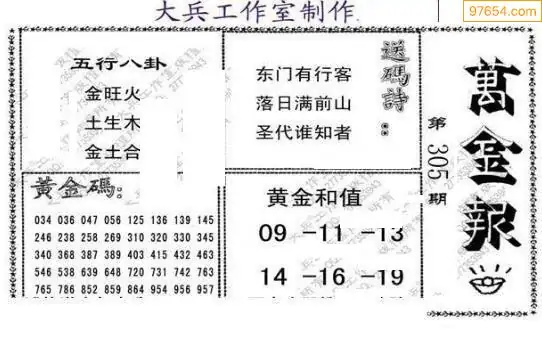 97654.com
大兵工作室制作
五行八卦
金旺火
土生木
金土合
送碼詩:
东门有行客
落日满前山
圣代谁知者
黄金碼:
034 036 047 056 125 136 139 145
246 238 258 269 310 320 330 345
340 368 387 389 403 415 432 463
546 538 639 648 720 731 742 763
765 786 852 859 864 954 956 957
黄金和值
09 -11 -13
14 -16 -19
萬金報
第305期